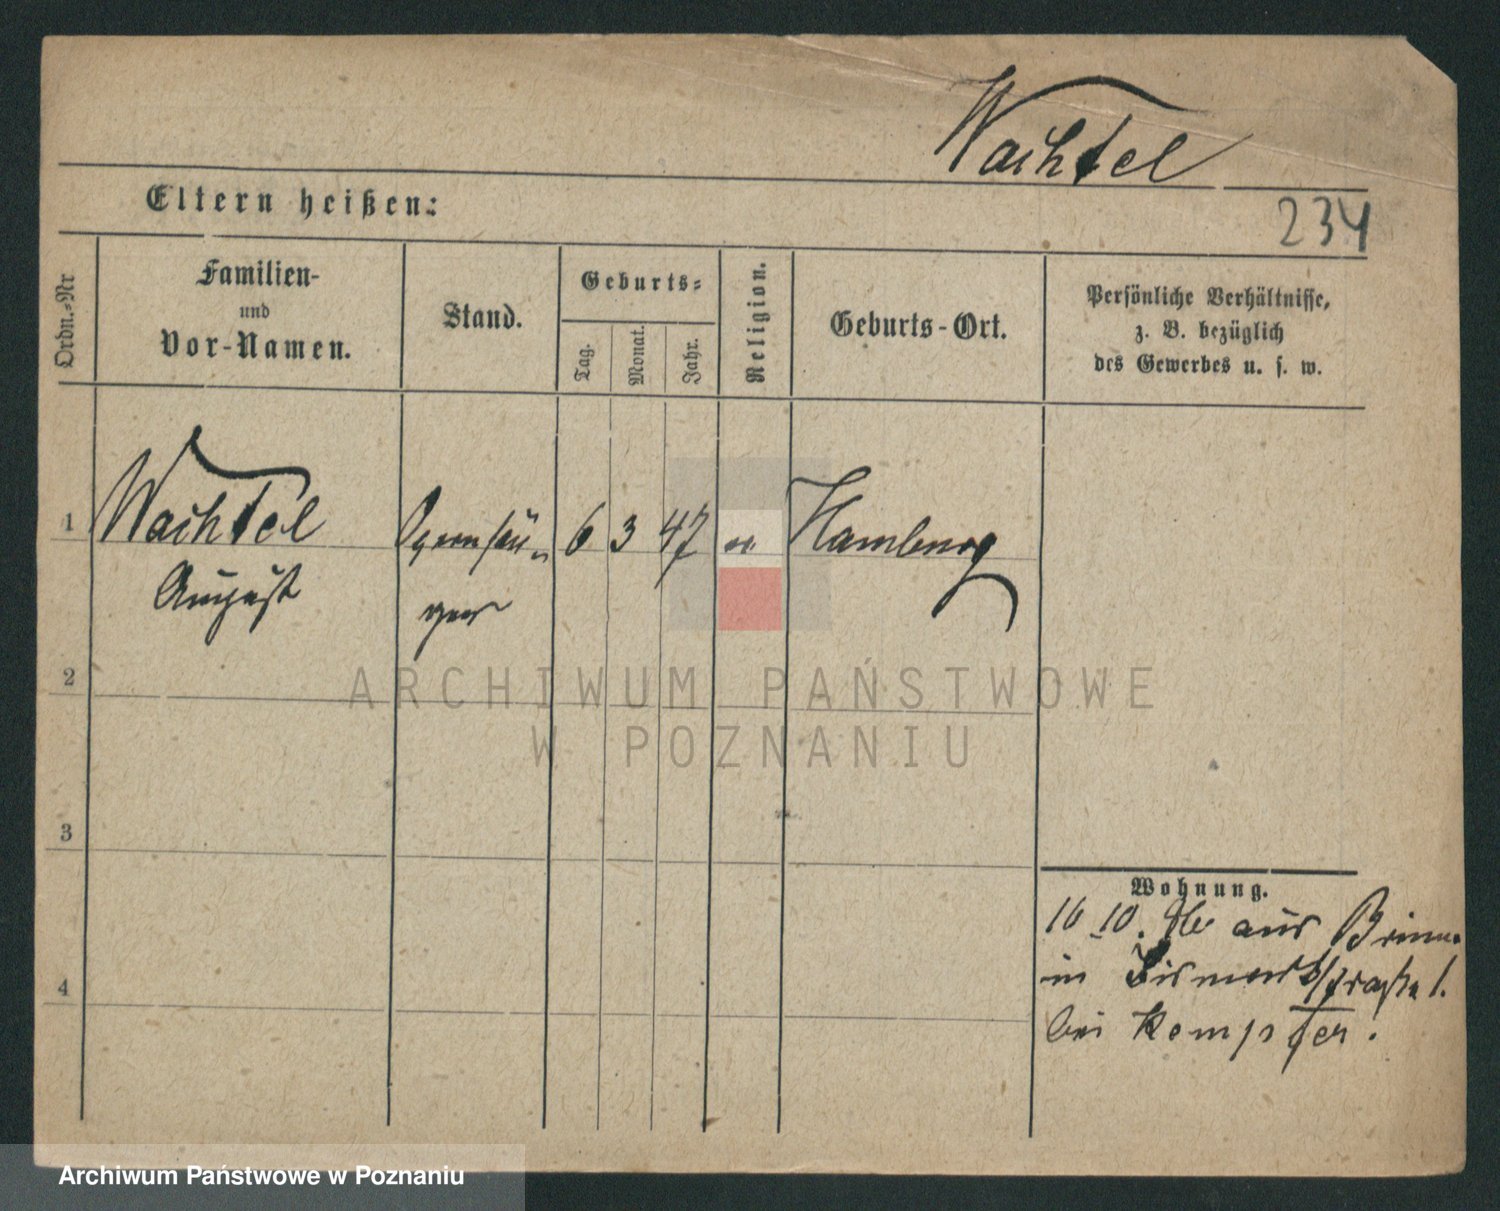 Wachtel
Eltern heißen:
234
Ordn.-Nr
Familien-
und
Vor-Namen.
Stand.
Geburts-
Tag.
Monat.
Jahr.
Religion.
Geburts-Ort.
Persönliche Verhältnisse,
z. B. bezüglich
des Gewerbes u. s. w.
1
Wachtel
August
Opernsän-
ger
6
3
47
ev.
Hamburg
2
3
4
Wohnung.
16 10. aus
in Bismarkstraße 1.
bei Kempfer.
ARCHIWUM PAŃSTWOWE
W POZNANIU
Archiwum Państwowe w Poznaniu